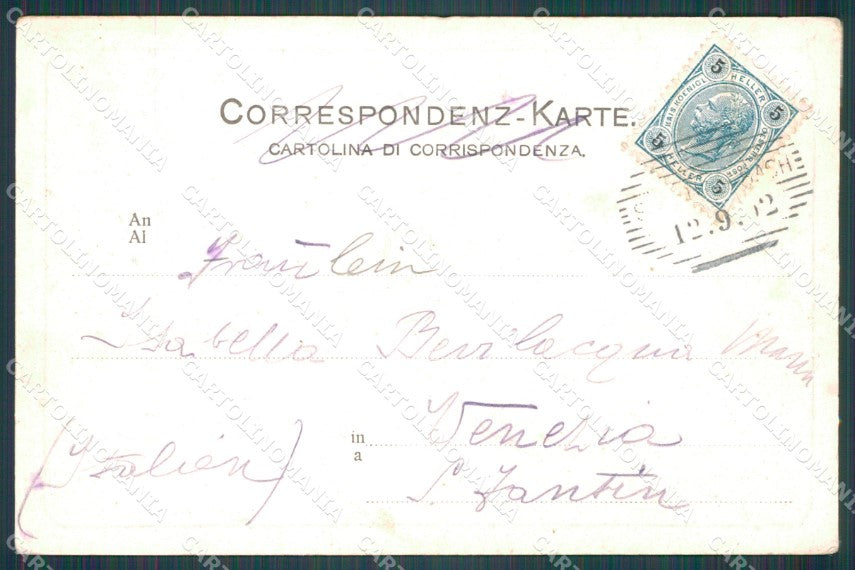 CORRESPONDENZ-KARTE.
CARTOLINA DI CORRISPONDENZA.
5 HELLER 5 HELLER 5 5
12.9.02
An
Al
Fräulein
Isabella Bevilacqua
in
a
Venezia
S. Fantin
(Italien)
CARTOLINOMANIA